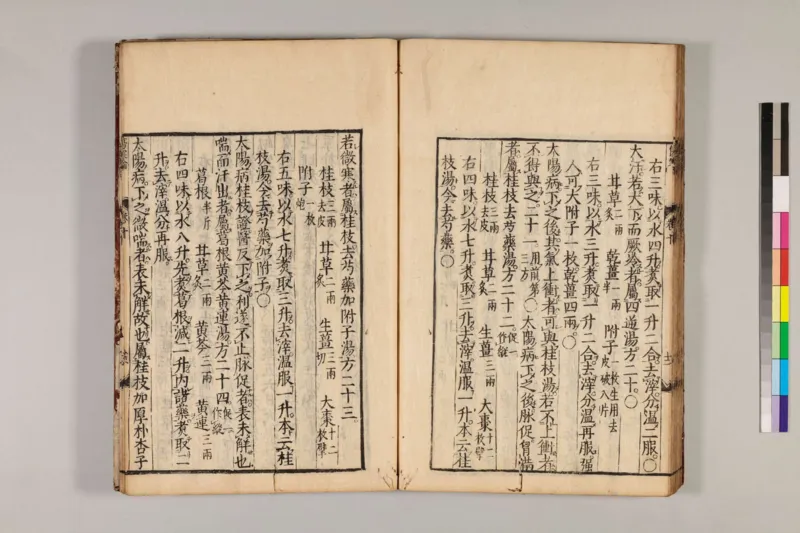 右三味以水四升煑取一升二合去滓分温二服〇
大汗若大下而厥冷者屬四逆湯方二十〇
甘草二兩炙 乾薑一兩半 附子一枚生用去皮破八片
右三味以水三升煑取一升二合去滓分温再服強
人可大附子一枚乾薑四兩〇
太陽病下之後其氣上衝者可與桂枝湯若不上衝者
不得與之二十一三方用前第〇太陽病下之後脉促胷滿
者屬桂枝去芍藥湯方二十二促一作縱
桂枝三兩去皮 甘草二兩炙 生薑三兩 大棗十二枚擘
右四味以水七升煑取三升去滓温服一升本云桂
枝湯今去芍藥〇
若微寒者屬桂枝去芍藥加附子湯方二十三
桂枝三兩去皮 甘草二兩炙 生薑三兩切 大棗十二枚擘
附子一枚炮
右五味以水七升煑取三升去滓温服一升本云桂
枝湯今去芍藥加附子〇
太陽病桂枝證醫反下之利遂不止脉促者表未解也
喘而汗出者屬葛根黄芩黄連湯方二十四促一作縱
葛根半斤 甘草二兩炙 黄芩三兩 黄連三兩
右四味以水八升先煑葛根減二升内諸藥煑取二
升去滓温分再服
太陽病下之微喘者表未解故也屬桂枝加厚朴杏子